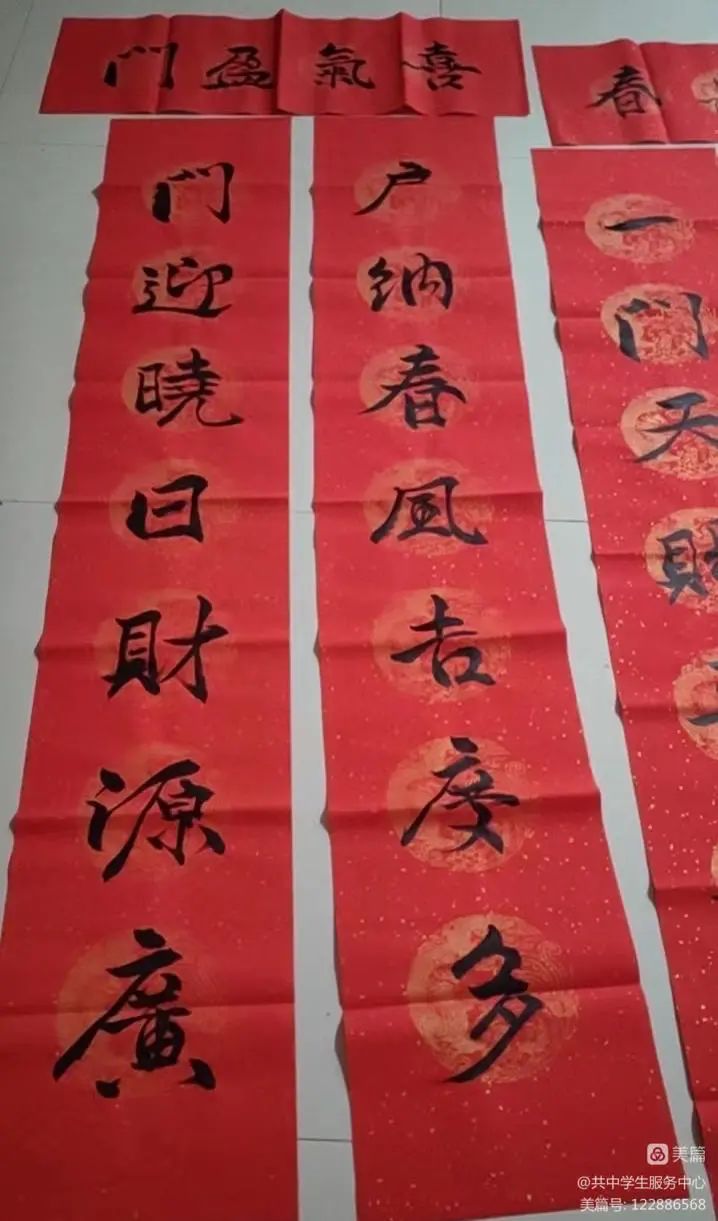 喜氣盈門
門迎曉日財源廣
户纳春風吉慶多
春
一門天財
美篇
@共中学生服务中心
美篇号: 122886568